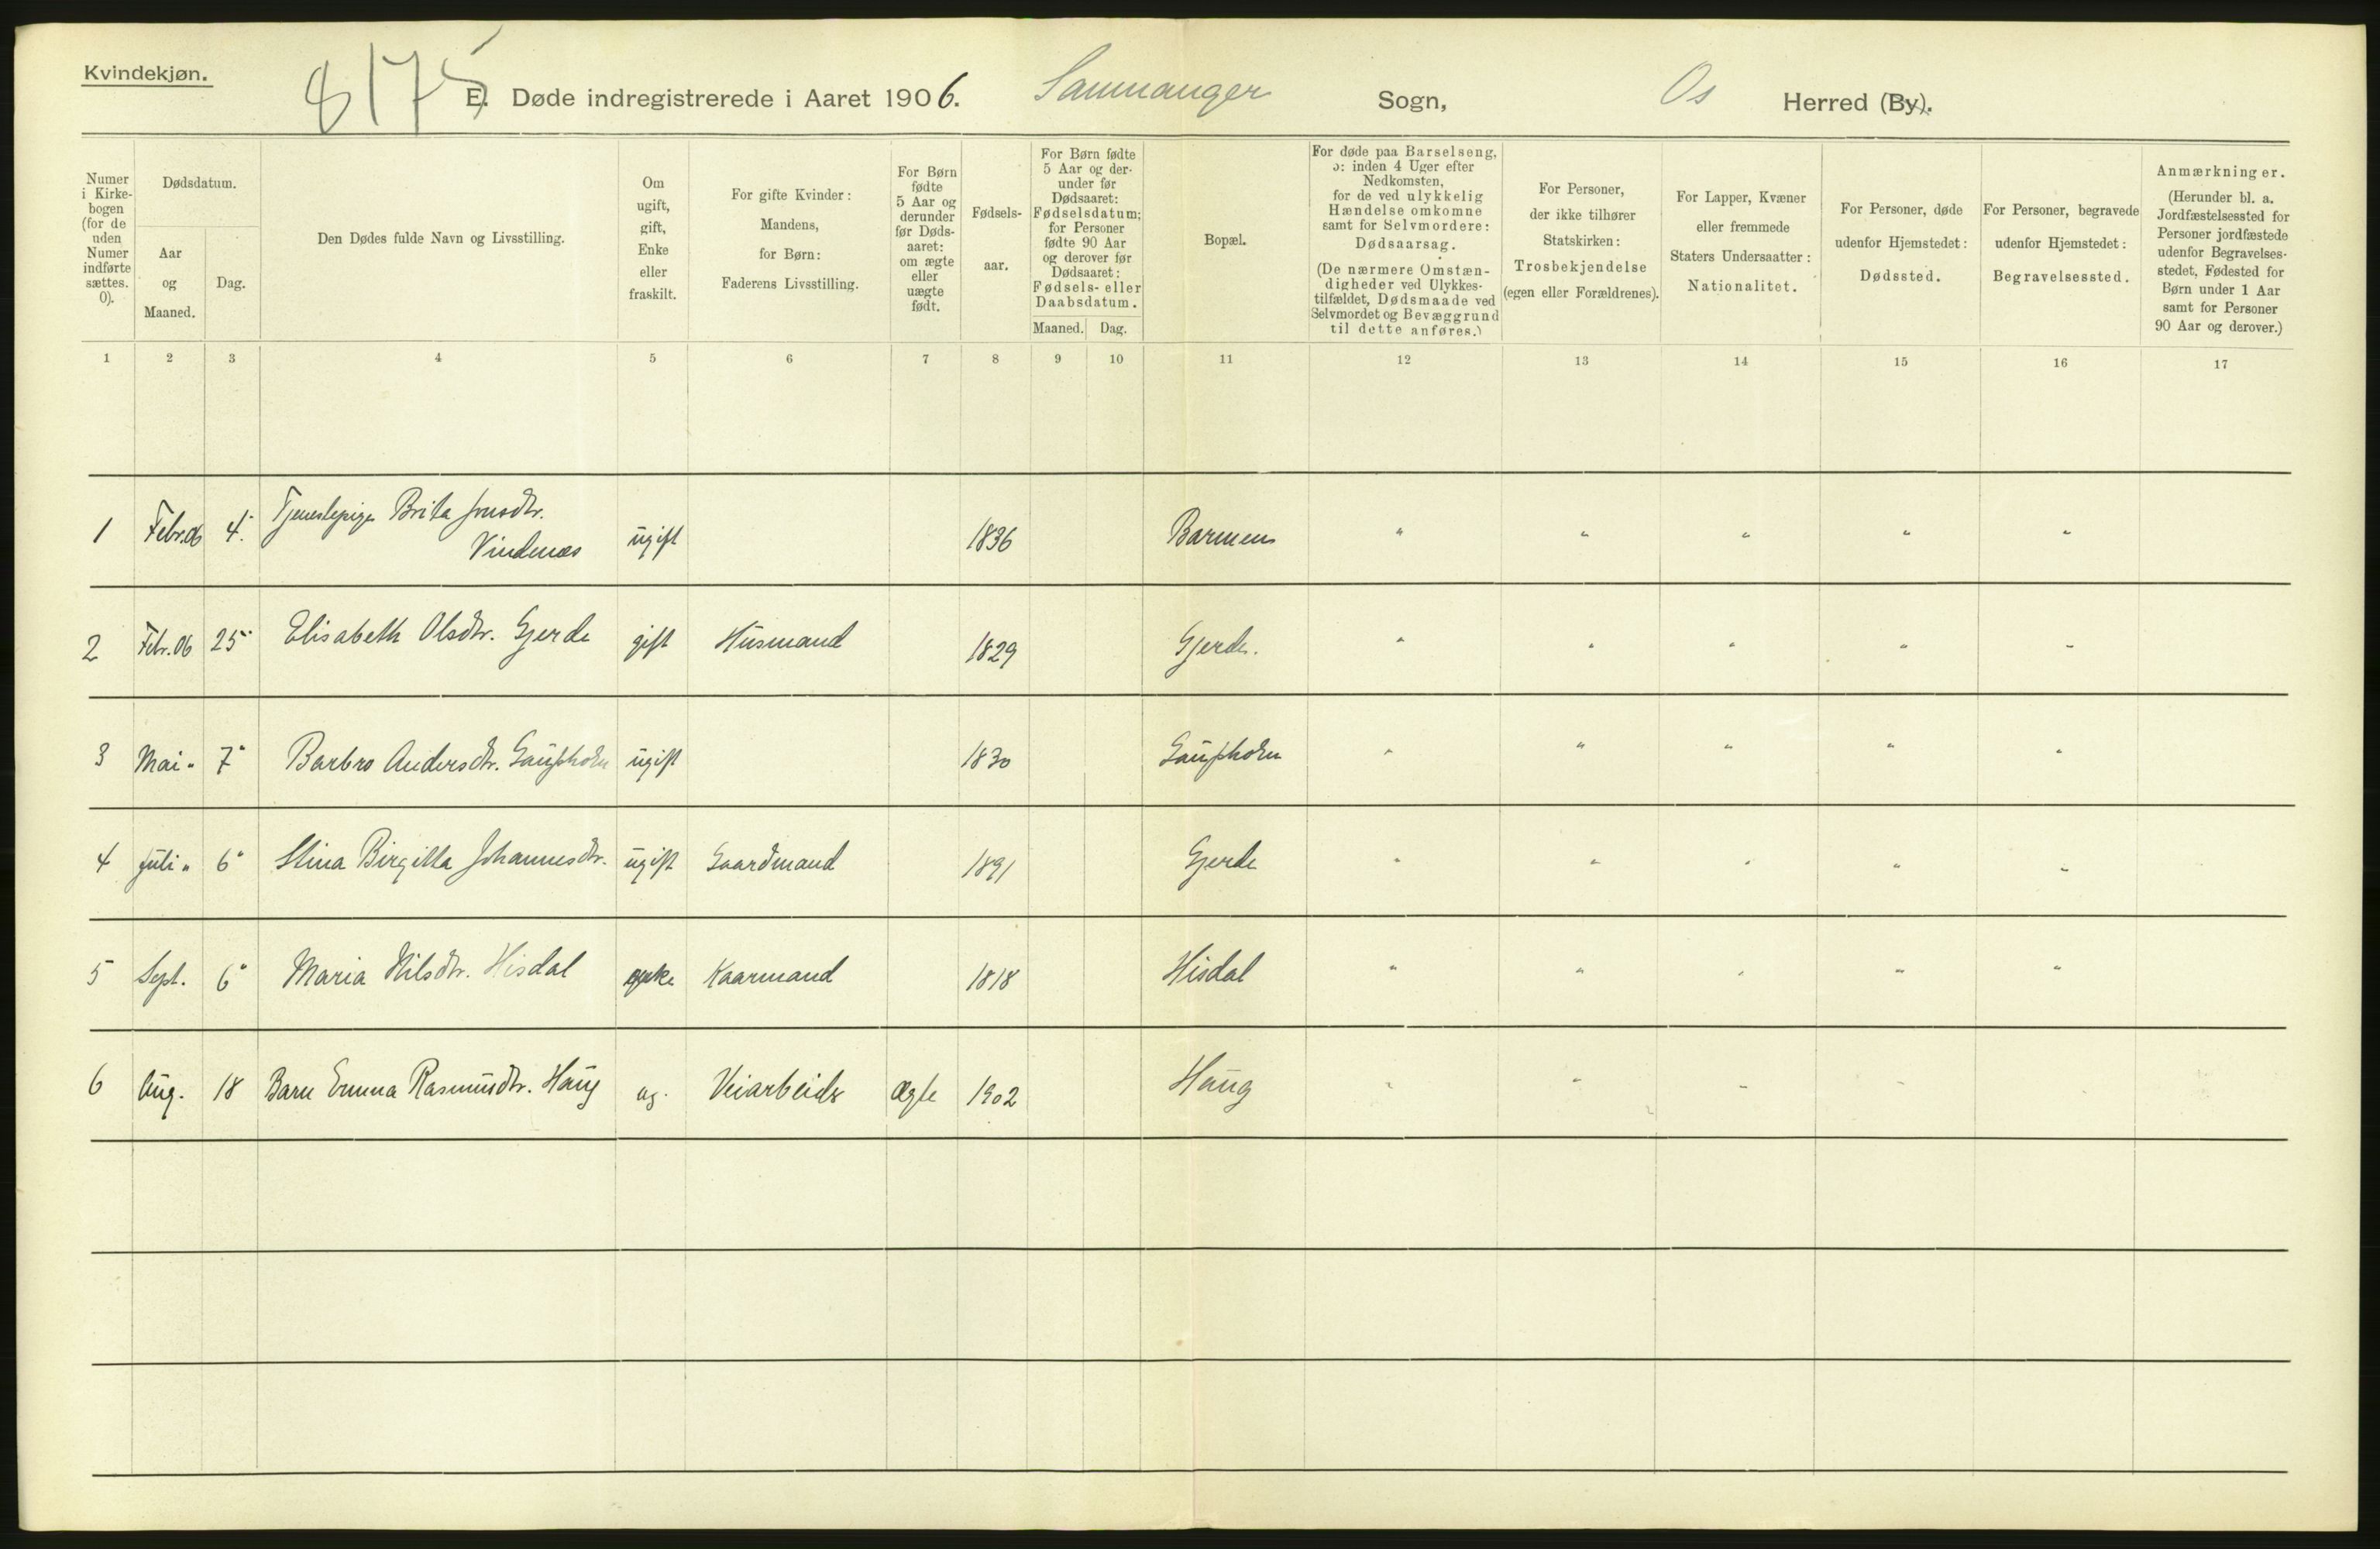 Kvindekjøn.
8175
E. Døde indregistrerede i Aaret 1906. Samnanger Sogn, Os Herred (By).
Numer i Kirke-bogen (for de uden Numer indførte sættes. 0).
Dødsdatum.
Aar og Maaned.
Dag.
Den Dødes fulde Navn og Livsstilling.
Om ugift, gift, Enke eller fraskilt.
For gifte Kvinder: Mandens, for Børn: Faderens Livsstilling.
For Børn fødte 5 Aar og derunder før Døds-aaret: om ægte eller uægte født.
Fødsels-aar.
For Børn fødte 5 Aar og der-under før Dødsaaret: Fødselsdatum; for Personer fødte 90 Aar og derover før Dødsaaret: Fødsels- eller Daabsdatum.
Maaned. Dag.
Bopæl.
For døde paa Barselseng, ɔ: inden 4 Uger efter Nedkomsten, for de ved ulykkelig Hændelse omkomne samt for Selvmordere: Dødsaarsag.
(De nærmere Omstæn-digheder ved Ulykkes-tilfældet, Dødsmaade ved Selvmordet og Bevæggrund til dette anføres.)
For Personer, der ikke tilhører Statskirken: Trosbekjendelse (egen eller Forældrenes).
For Lapper, Kvæner eller fremmede Staters Undersaatter: Nationalitet.
For Personer, døde udenfor Hjemstedet: Dødssted.
For Personer, begravede udenfor Hjemstedet: Begravelsessted.
Anmærkninger.
(Herunder bl. a. Jordfæstelsessted for Personer jordfæstede udenfor Begravelses-stedet, Fødested for Børn under 1 Aar samt for Personer 90 Aar og derover.)
1 2 3 4 5 6 7 8 9 10 11 12 13 14 15 16 17
1 Febr. 06 4. Tjenestepige Brita Jonsdtr. Vindenes ugift 1836 Barmen " " " " "
2 Febr. 06 25 Elisabeth Olsdtr. Gjerde gift Husmand 1829 Gjerde. " " " " "
3 Mai " 7 Barbro Andersdtr. ugift 1830 " " " " "
4 Juli " 6 Stina Birgitta Johannesdtr. ugift Gaardmand 1891 Gjerde " " " " "
5 Sept. 6 Maria Nilsdtr. Hisdal enke Kaarmand 1818 Hisdal " " " " "
6 Aug. 18 Barn Emma Rasmusdtr. Haug ug. Veiarbeider Ægte 1902 Haug " " " " "